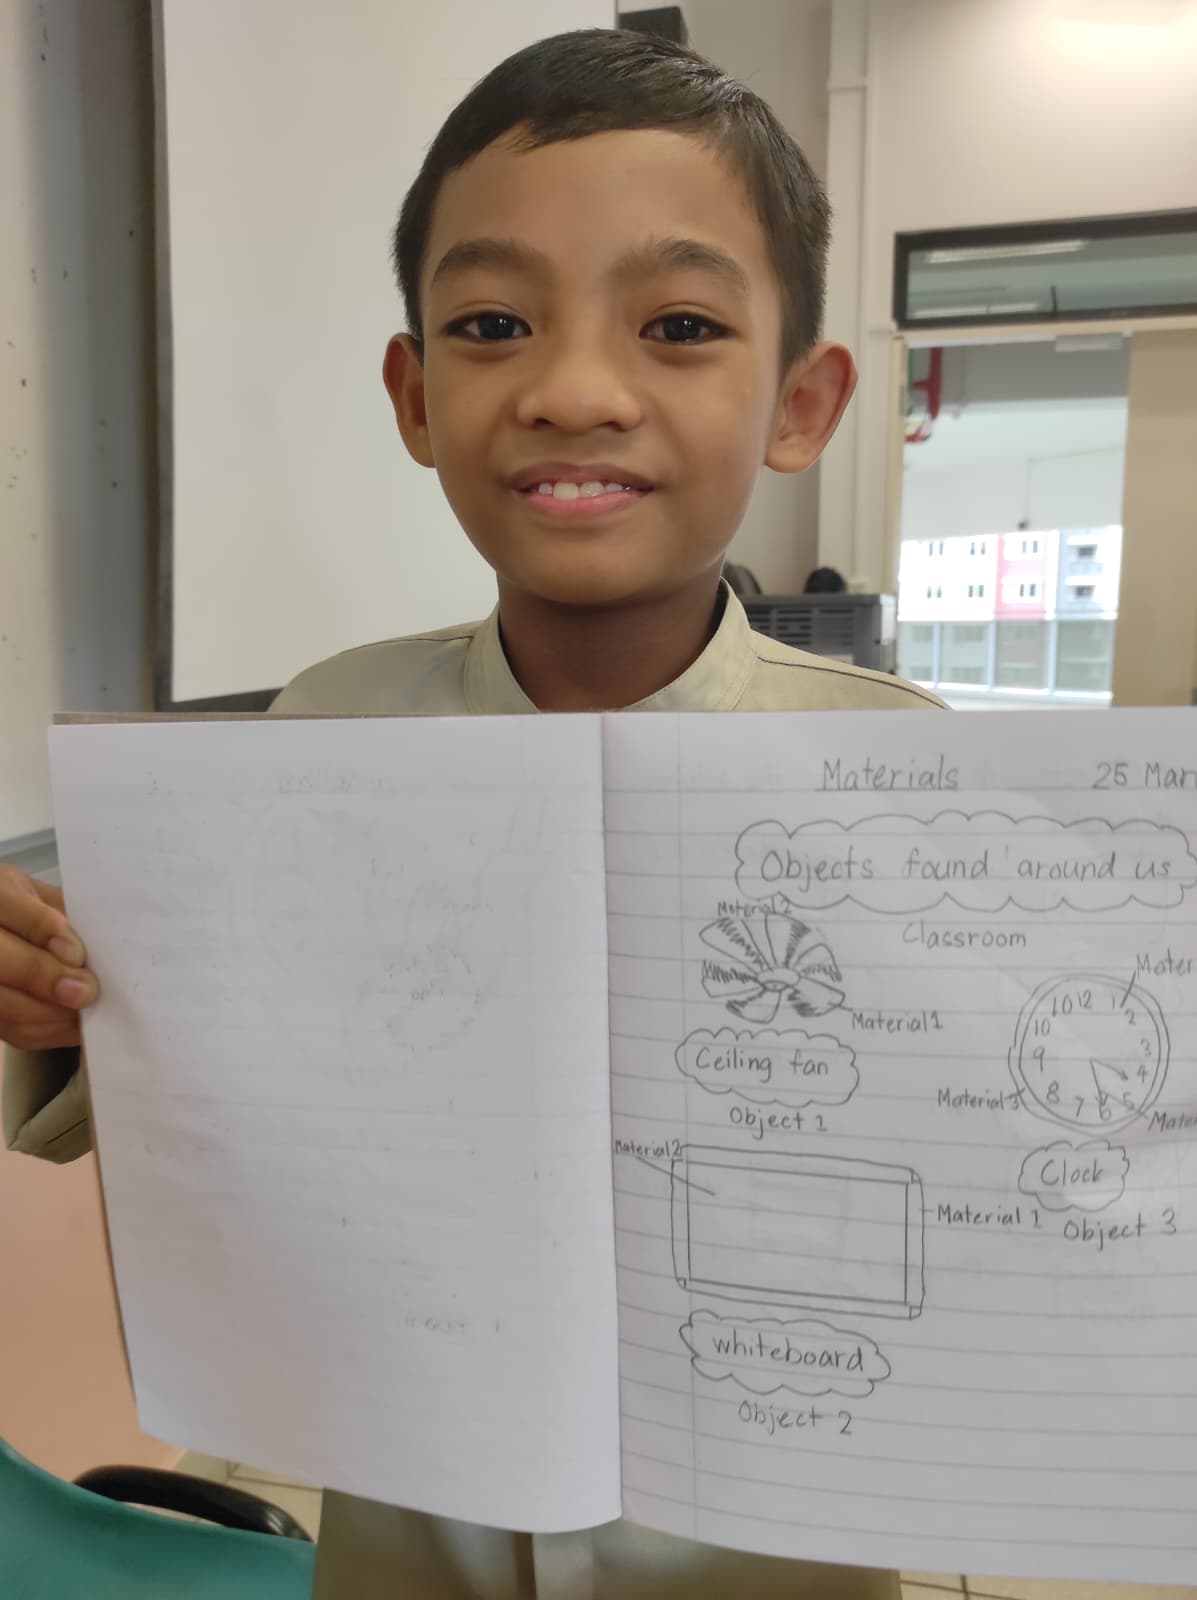 Materials 25 Mar
Objects found around us
Classroom
Material 2
Material 1
Ceiling fan
Object 1
Mater
10 12 1
2
10
3
9
4
8
7 6 5
Material 3
Mate
Clock
Object 3
Material 2
Material 1
whiteboard
Object 2